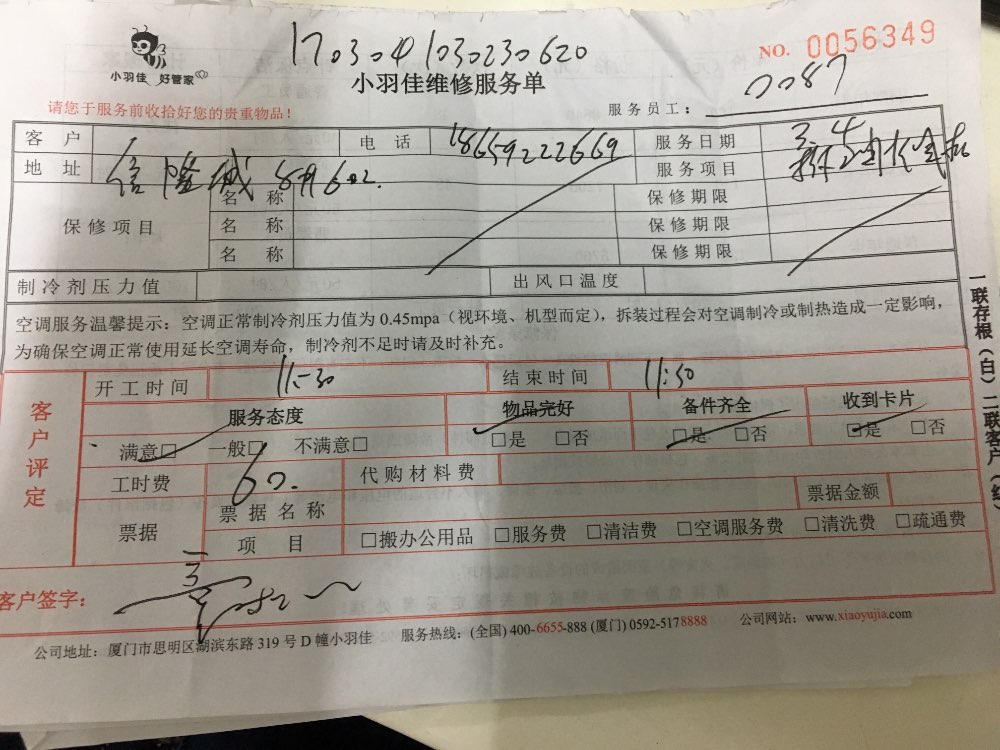 170304103023062​0
小羽佳 好管家
NO. 0056349
小羽佳维修服务单
请您于服务前收拾好您的贵重物品！
服务员工： 0087
客户 电话 18659222669 服务日期 3.4
地址 信隆城 602. 服务项目
保修项目 名称 保修期限
名称 保修期限
名称 保修期限
制冷剂压力值 出风口温度
空调服务温馨提示：空调正常制冷剂压力值为 0.45mpa（视环境、机型而定），拆装过程会对空调制冷或制热造成一定影响，
为确保空调正常使用延长空调寿命，制冷剂不足时请及时补充。
客户评定
开工时间 11:30 结束时间 11:50
服务态度 物品完好 备件齐全 收到卡片
满意□ 一般□ 不满意□ □是 □否 □是 □否 □是 □否
工时费 60. 代购材料费
票据 票据名称 票据金额
项目 □搬办公用品 □服务费 □清洁费 □空调服务费 □清洗费 □疏通费
客户签字：
公司地址：厦门市思明区湖滨东路 319 号 D 幢小羽佳 服务热线：(全国) 400-6655-888 (厦门) 0592-5178888 公司网站：www.xiaoyujia.com
一联存根（白）二联客户（红